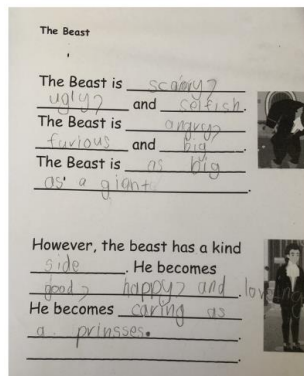 The Beast
The Beast is scarry,
ugly, and selfish.
The Beast is angry,
furious and big.
The Beast is as big
as a giant.
However, the beast has a kind
side. He becomes
good, happy, and loving
He becomes caring as
a prinsses.